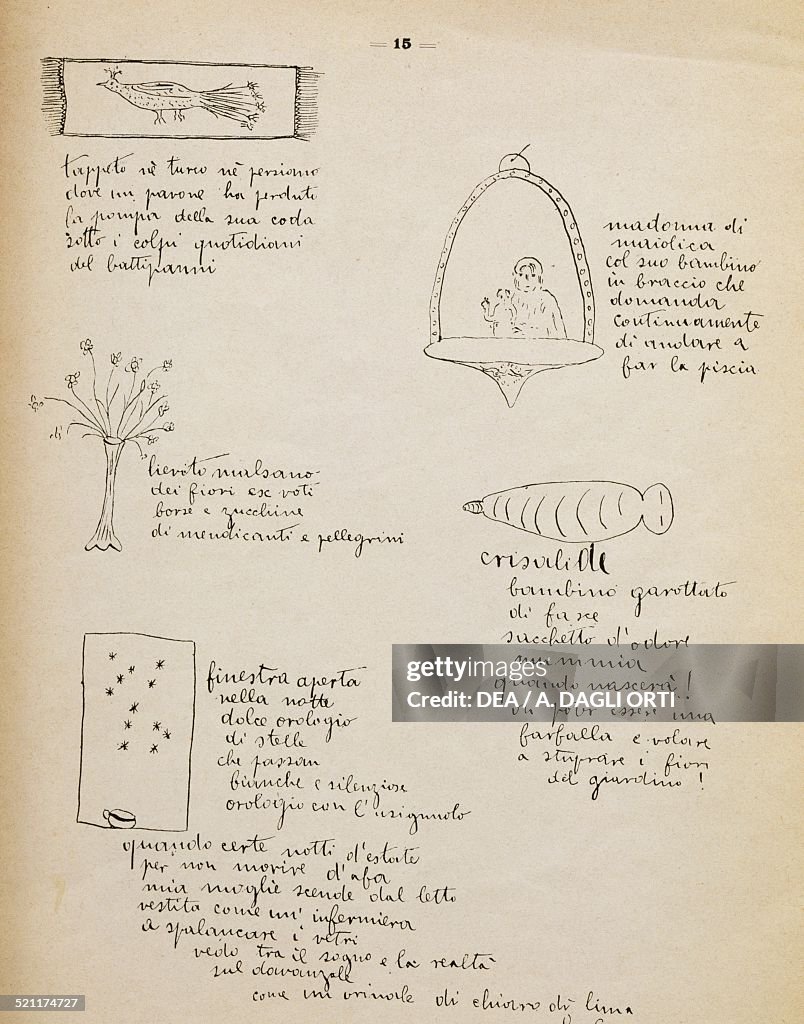 15
tappeto nè turco nè persiano
dove un pavone ha perduto
la pompa della sua coda
sotto i colpi quotidiani
del battipanni
madonna di
maiolica
col suo bambino
in braccio che
domanda
continuamente
di andare a
far la piscia
lievito malsano
dei fiori ex voti
borse e zucchine
di mendicanti e pellegrini
crisalide
bambino garottato
di fasce
sacchetto d'odore
mummia
quando nascerà!
poor essere una
farfalla e volare
a stuprare i fiori
del giardino!
finestra aperta
nella notte
dolce orologio
di stelle
che passan
bianche e silenziose
orologio con l'usignuolo
quando certe notti d'estate
per non morire d'afa
mia moglie scende dal letto
vestita come un'infermiera
a spalancare i vetri
vedo tra il sogno e la realtà
sul davanzale
come un orinale di chiaro di luna
gettyimages
Credit: DEA / A. DAGLI ORTI
521174727